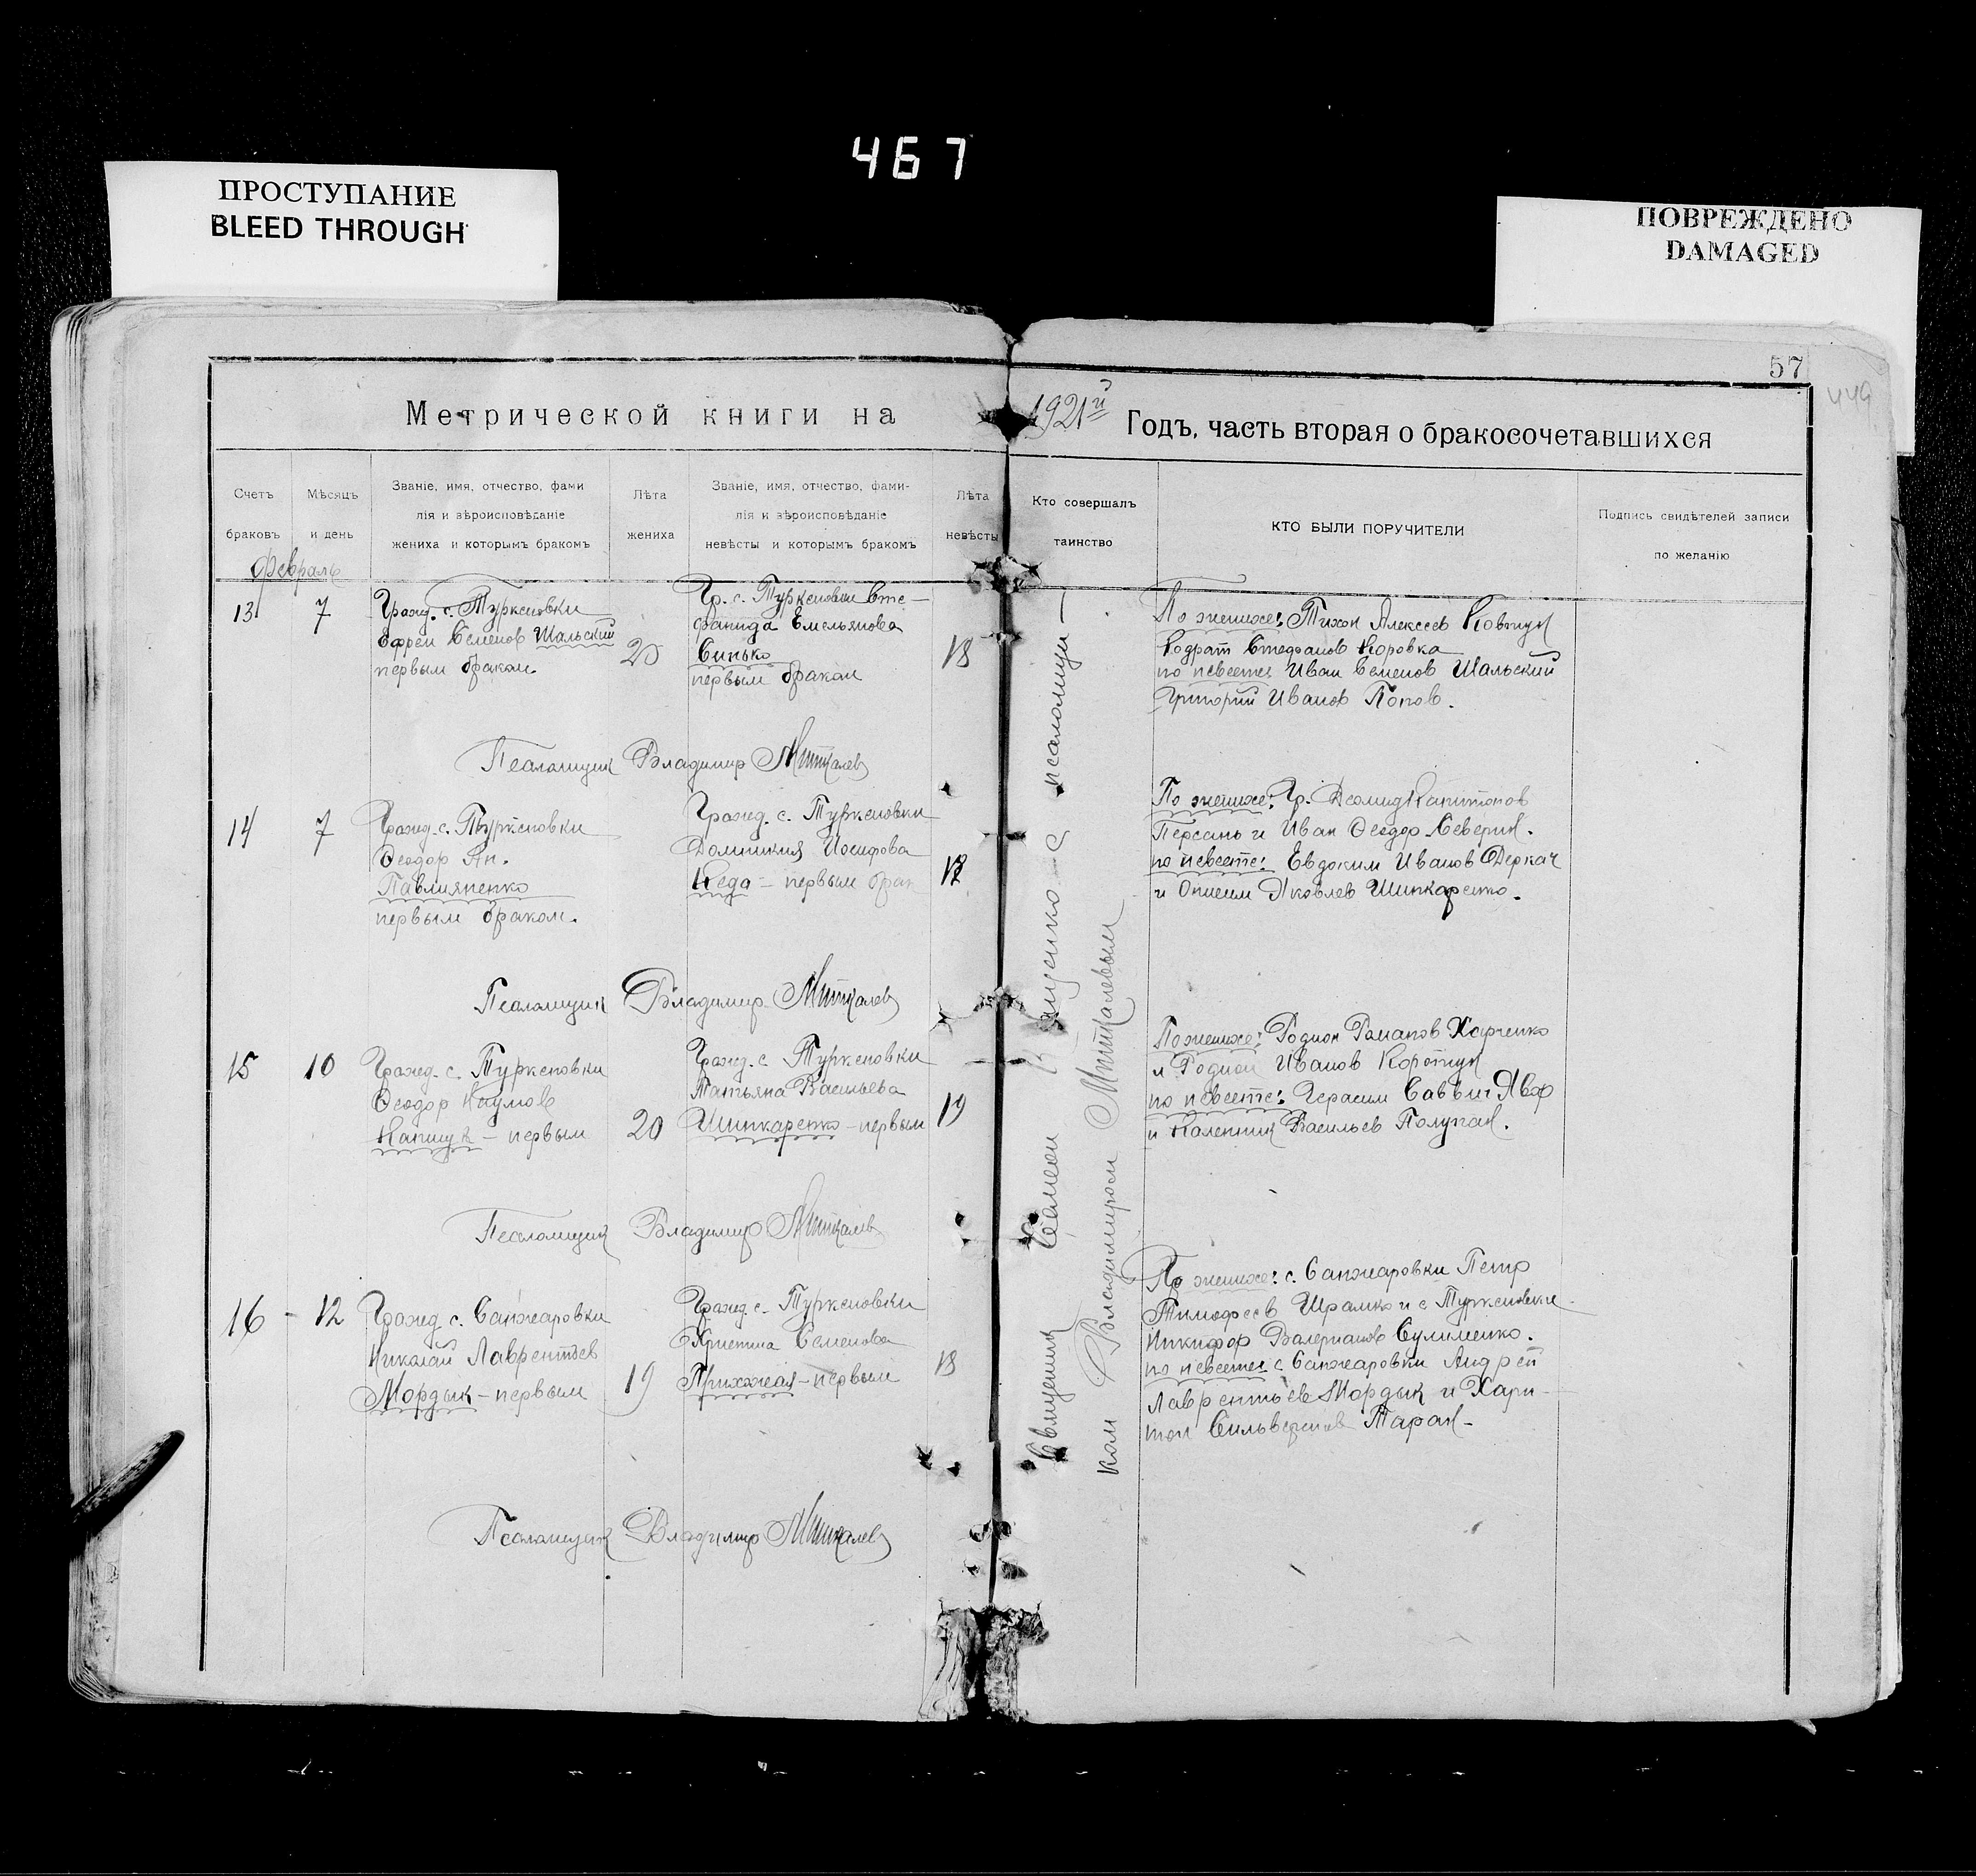 467
ПРОСТУПАНИЕ
BLEED THROUGH
ПОВРЕЖДЕНО
DAMAGED
57
449
Метрической книги на
1921й Годъ, часть вторая о бракосочетавшихся
Счетъ браковъ
Мѣсяцъ и день
Званіе, имя, отчество, фами
лія и вѣроисповѣданіе
жениха и которымъ бракомъ
Лѣта жениха
Званіе, имя, отчество, фами-
лія и вѣроисповѣданіе
невѣсты и которымъ бракомъ
Лѣта невѣсты
Кто совершалъ таинство
КТО БЫЛИ ПОРУЧИТЕЛИ
Подпись свидѣтелей записи
по желанію
Февраль
13
7
Гражд. с. Туркеновки
Ефрем Семенов Шальский
первым браком.
20
Гр. с. Туркеновки Сте-
фанида Емельянова
Синько
первым браком
18
По женихе: Тихон Алексеев Ковтун
Кодрат Стефанов Коровка
по невесте: Иван Семенов Шальский
Григорий Иванов Попов.
Псаломщик Владимир Миткалев
14
7
Гражд. с. Туркеновки
Феодор Ян.
Павлияненко
первым браком.
Гражд. с. Туркеновки
Домникия Иосифова
Кеда - первым брак
По женихе: Гр. Деомид Капитонов
Персань и Иван Феодор Северин.
по невесте: Евдоким Иванов Деркач
и Онисим Яковлев Шинкаренко.
Псаломщик Владимир Миткалев
15
10
Гражд. с. Туркеновки
Феодор Наумов
Капшук - первым
20
Гражд. с. Туркеновки
Татьяна Васильева
Шинкаренко - первым
19
По женихе: Родион Романов Харченко
и Родион Иванов Коротун
по невесте: Герасим Саввич
и Каленник Васильев Полупан.
Псаломщик Владимир Миткалев
16 - 12
Гражд. с. Санжаровки
Николай Лаврентьев
Мордык - первым
19
Гражд. с. Туркеновки
Христина Семенова
Прихожая - первым
18
По женихе: с. Санжаровки Петр
Тимофеев Шрамко и с. Туркеновки
Никифор Валерианов Сулименко.
по невесте: с. Санжаровки Андрей
Лаврентьев Мордык и Хари-
тон Сильверстов Таран -
Псаломщик Владимир Миткалев
Священник Симеон с псаломщи-
ком Владимиром Миткалевым